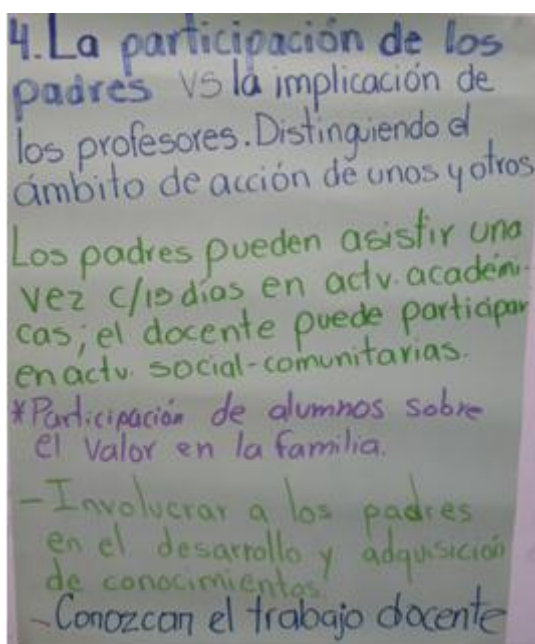 4. La participación de los
padres vs la implicación de
los profesores. Distinguiendo el
ámbito de acción de unos y otros
Los padres pueden asistir una
vez c/15 días en actv. académi-
cas; el docente puede participar
en actv. social-comunitarias.
*Participación de alumnos sobre
el valor en la familia.
- Involucrar a los padres
en el desarrollo y adquisición
de conocimientos.
- Conozcan el trabajo docente